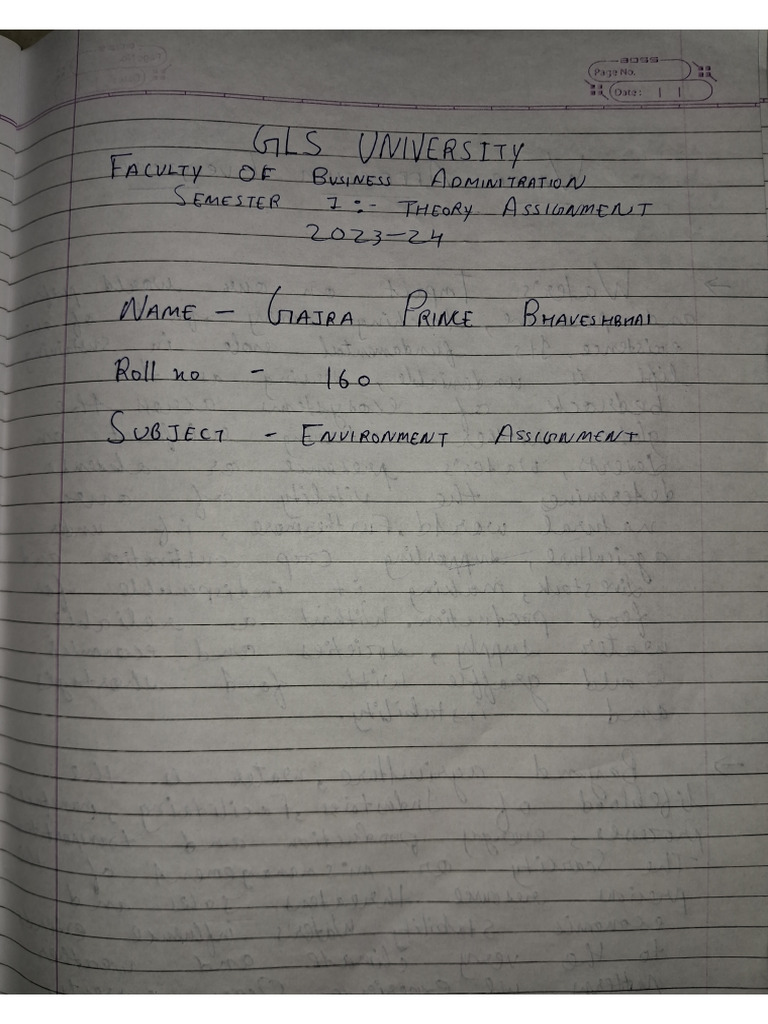 BOSS
Page No.
Date:
GLS UNIVERSITY
FACULTY OF BUSINESS ADMINITRATION
SEMESTER 1:- THEORY ASSIGNMENT
2023-24
NAME - GAJRA PRINCE BHAVESHBHAI
Roll no - 160
SUBJECT - ENVIRONMENT ASSIGNMENT